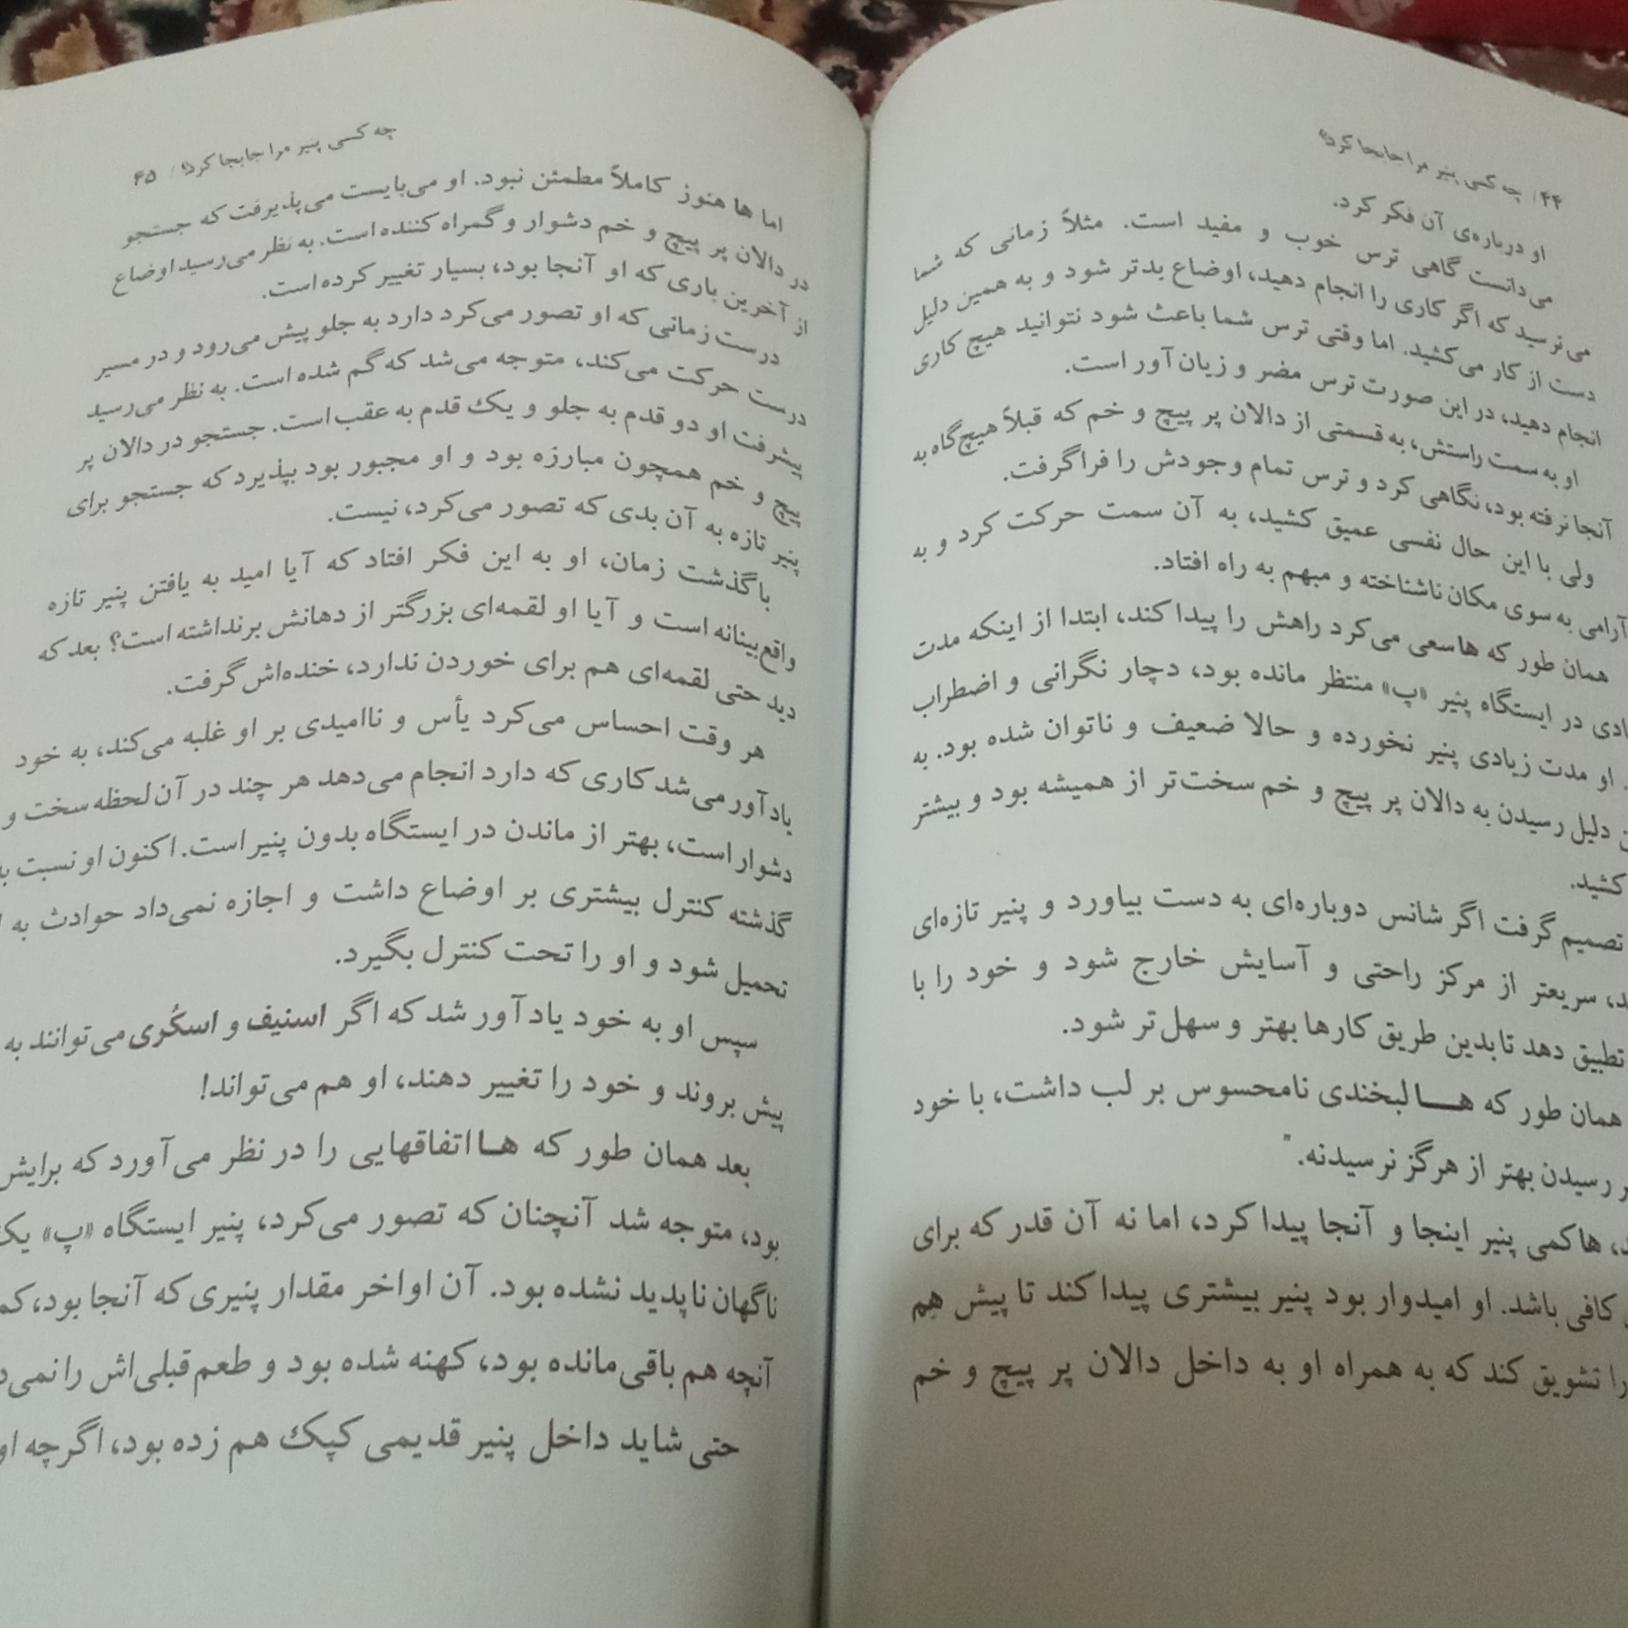 ۴۴ / چه کسی پنیر مرا جابجا کرد؟
او درباره‌ی آن فکر کرد.
می‌دانست گاهی ترس خوب و مفید است. مثلاً زمانی که شما
می‌ترسید که اگر کاری را انجام دهید، اوضاع بدتر شود و به همین دلیل
دست از کار می‌کشید. اما وقتی ترس شما باعث شود نتوانید هیچ کاری
انجام دهید، در این صورت ترس مضر و زیان‌آور است.
او به سمت راستش، به قسمتی از دالان پر پیچ و خم که قبلاً هیچ‌گاه به
آنجا نرفته بود، نگاهی کرد و ترس تمام وجودش را فرا گرفت.
ولی با این حال نفسی عمیق کشید، به آن سمت حرکت کرد و به
آرامی به سوی مکان ناشناخته و مبهم به راه افتاد.
همان طور که ها سعی می‌کرد راهش را پیدا کند، ابتدا از اینکه مدت
در ایستگاه پنیر «پ» منتظر مانده بود، دچار نگرانی و اضطراب
او مدت زیادی پنیر نخورده و حالا ضعیف و ناتوان شده بود. به
دلیل رسیدن به دالان پر پیچ و خم سخت‌تر از همیشه بود و بیشتر
کشید.
تصمیم گرفت اگر شانس دوباره‌ای به دست بیاورد و پنیر تازه‌ای
سریعتر از مرکز راحتی و آسایش خارج شود و خود را با
تطبیق دهد تا بدین طریق کارها بهتر و سهل‌تر شود.
همان طور که هـا لبخندی نامحسوس بر لب داشت، با خود
رسیدن بهتر از هرگز نرسیدنه."
ها کمی پنیر اینجا و آنجا پیدا کرد، اما نه آن قدر که برای
کافی باشد. او امیدوار بود پنیر بیشتری پیدا کند تا پیش هِم
را تشویق کند که به همراه او به داخل دالان پر پیچ و خم
چه کسی پنیر مرا جابجا کرد؟ / ۴۵
اما ها هنوز کاملاً مطمئن نبود. او می‌بایست می‌پذیرفت که جستجو
در دالان پر پیچ و خم دشوار و گمراه کننده است. به نظر می‌رسید اوضاع
از آخرین باری که او آنجا بود، بسیار تغییر کرده است.
درست زمانی که او تصور می‌کرد دارد به جلو پیش می‌رود و در مسیر
درست حرکت می‌کند، متوجه می‌شد که گم شده است. به نظر می‌رسید
پیشرفت او دو قدم به جلو و یک قدم به عقب است. جستجو در دالان پر
پیچ و خم همچون مبارزه بود و او مجبور بود بپذیرد که جستجو برای
پنیر تازه به آن بدی که تصور می‌کرد، نیست.
با گذشت زمان، او به این فکر افتاد که آیا امید به یافتن پنیر تازه
واقع‌بینانه است و آیا او لقمه‌ای بزرگتر از دهانش برنداشته است؟ بعد که
دید حتی لقمه‌ای هم برای خوردن ندارد، خنده‌اش گرفت.
هر وقت احساس می‌کرد یأس و ناامیدی بر او غلبه می‌کند، به خود
یادآور می‌شد کاری که دارد انجام می‌دهد هر چند در آن لحظه سخت و
دشوار است، بهتر از ماندن در ایستگاه بدون پنیر است. اکنون او نسبت به
گذشته کنترل بیشتری بر اوضاع داشت و اجازه نمی‌داد حوادث به
تحمیل شود و او را تحت کنترل بگیرد.
سپس او به خود یادآور شد که اگر اسنیف و اسکُری می‌توانند به
پیش بروند و خود را تغییر دهند، او هم می‌تواند!
بعد همان طور که هـا اتفاقهایی را در نظر می‌آورد که برایش
بود، متوجه شد آنچنان که تصور می‌کرد، پنیر ایستگاه «پ» یک
ناگهان ناپدید نشده بود. آن اواخر مقدار پنیری که آنجا بود، کم
آنچه هم باقی مانده بود، کهنه شده بود و طعم قبلی‌اش را
حتی شاید داخل پنیر قدیمی کپک هم زده بود، اگرچه او